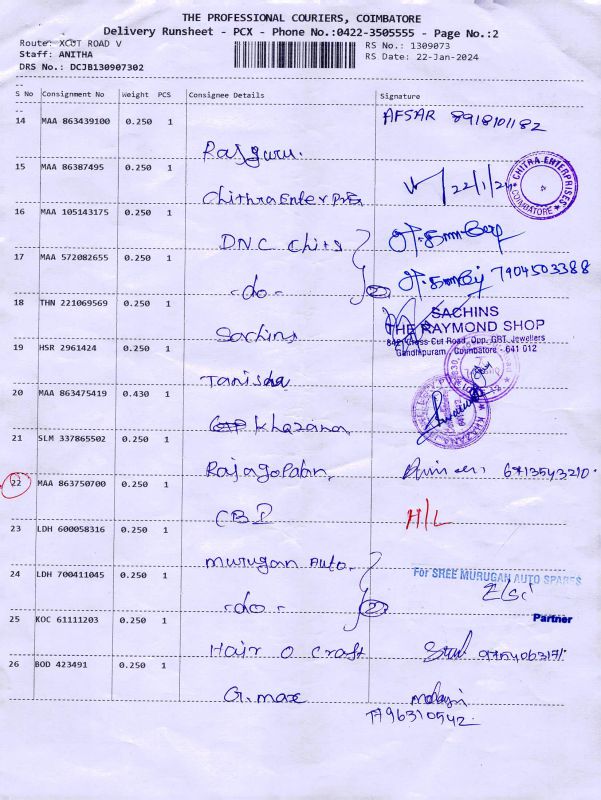 THE PROFESSIONAL COURIERS, COIMBATORE
Delivery Runsheet - PCX - Phone No.:0422-3505555 - Page No.:2
Route: XCUT ROAD V
RS No.: 1309073
Staff: ANITHA
RS Date: 22-Jan-2024
DRS No.: DCJB130907302
S No Consignment No Weight PCS Consignee Details Signature
14 MAA 863439100 0.250 1 AFSAR 8918101182
Rajguru.
15 MAA 86387495 0.250 1
Chithra Enterprises 22/1/24.
CHITRA ENTERPRISES
COIMBATORE
16 MAA 105143175 0.250 1
DNC Chits
17 MAA 572082655 0.250 1
-do- 2 7904503388
18 THN 221069569 0.250 1
SACHINS
THE RAYMOND SHOP
Sachins
842, Cross Cut Road, Opp. GRT Jewellers
Gandhipuram, Coimbatore - 641 012
19 HSR 2961424 0.250 1
Tanisda
20 MAA 863475419 0.430 1
Khazana
21 SLM 337865502 0.250 1
Rajagopalan,
22 MAA 863750700 0.250 1
CBI H/L
23 LDH 600058316 0.250 1
Murugan Auto.
24 LDH 700411045 0.250 1
For SREE MURUGAN AUTO SPARES
-do- 2
25 KOC 61111203 0.250 1
Partner
Hair O Craft
26 BOD 423491 0.250 1
G.max
7796310542.